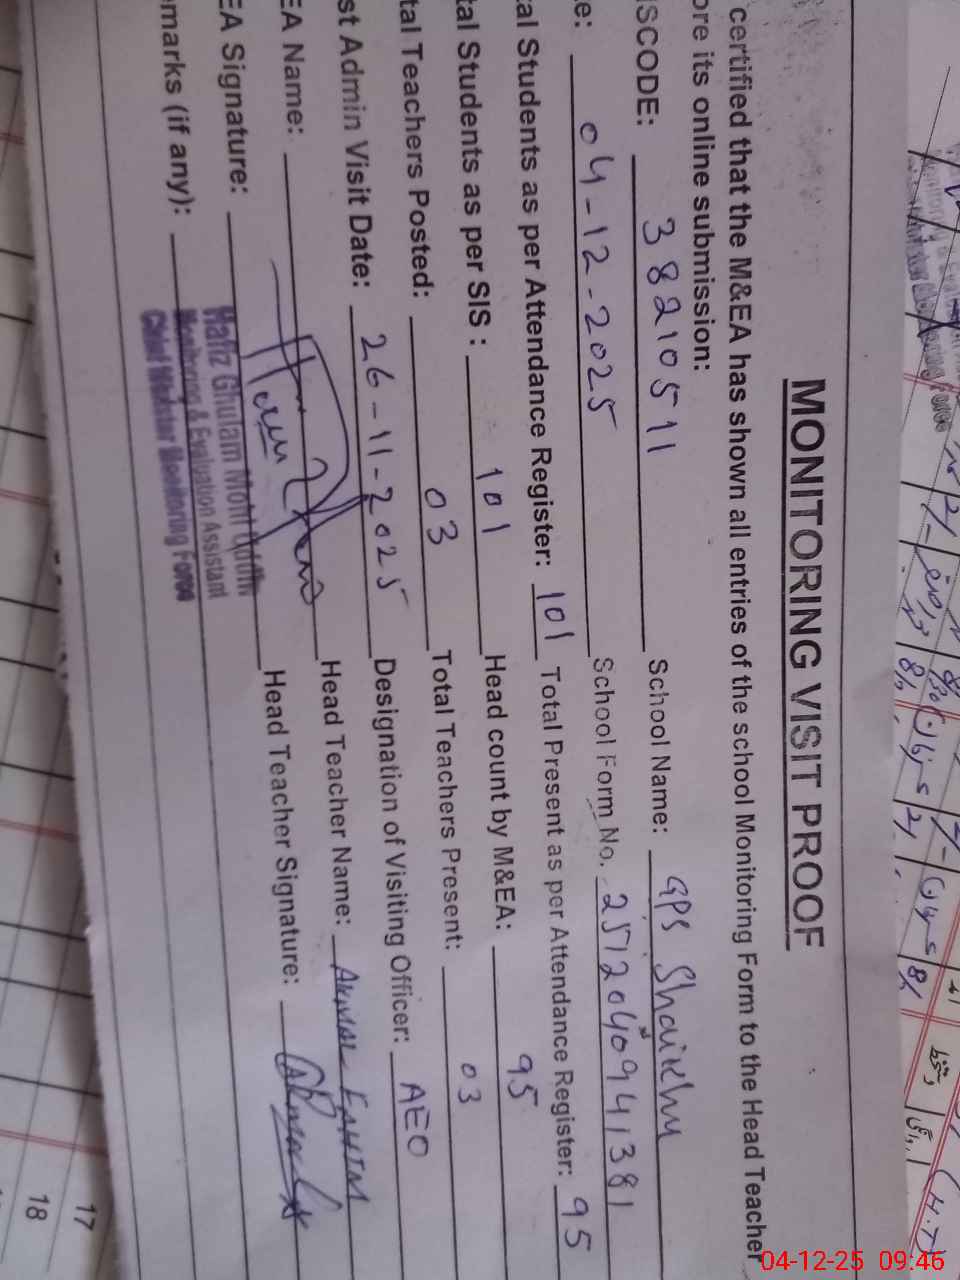 MONITORING VISIT PROOF
certified that the M&EA has shown all entries of the school Monitoring Form to the Head Teacher
ore its online submission:
ISCODE: 38210511 School Name: GPS Shaikhu
e: 04-12-2025 School Form No. 2512040941381
tal Students as per Attendance Register: 101 Total Present as per Attendance Register: 95
tal Students as per SIS : 101 Head count by M&EA: 95
tal Teachers Posted: 03 Total Teachers Present: 03
st Admin Visit Date: 26-11-2025 Designation of Visiting Officer: AEO
EA Name: Head Teacher Name:
EA Signature: Head Teacher Signature:
Hafiz Ghulam Mohi Uddin
emarks (if any): Monitoring & Evaluation Assistant
Chief Minister Monitoring Force
17
18
04-12-25 09:46